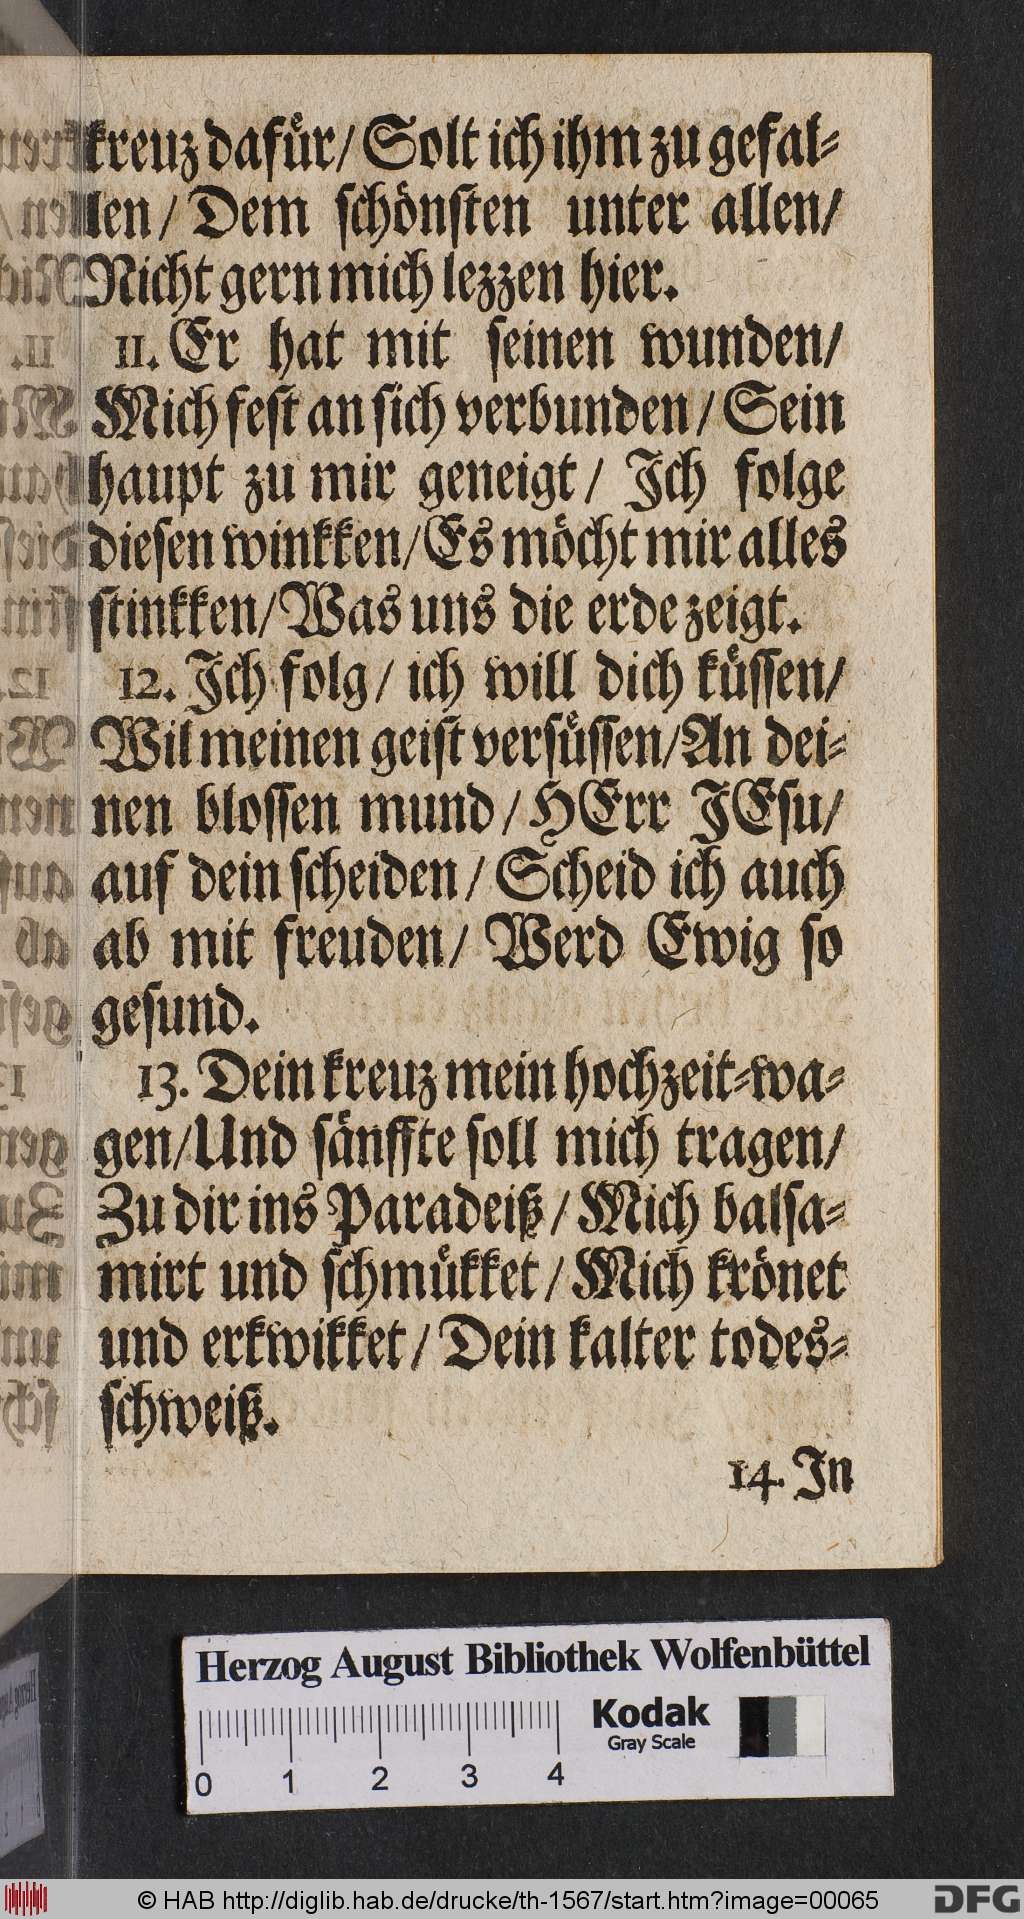 kreuz dafuͤr/ Solt ich ihm zu gefal-
len/ Dem schoͤnsten unter allen/
Nicht gern mich lezzen hier.
11. Er hat mit seinen wunden/
Mich fest an sich verbunden/ Sein
haupt zu mir geneigt/ Ich folge
diesen winkken/ Es moͤcht mir alles
stinkken/ Was uns die erde zeigt.
12. Ich folg/ ich will dich kuͤssen/
Wil meinen geist versuͤssen/ An dei-
nen blossen mund/ HErr JEsu/
auf dein scheiden/ Scheid ich auch
ab mit freuden/ Werd Ewig so
gesund.
13. Dein kreuz mein hochzeit-wa-
gen/ Und saͤnffte soll mich tragen/
Zu dir ins Paradeiß/ Mich balsa-
mirt und schmuͤkket/ Mich kroͤnet
und erkwikket/ Dein kalter todes-
schweiß.
14. In
Herzog August Bibliothek Wolfenbüttel
Kodak
Gray Scale
0 1 2 3 4
© HAB http://diglib.hab.de/drucke/th-1567/start.htm?image=00065
DFG